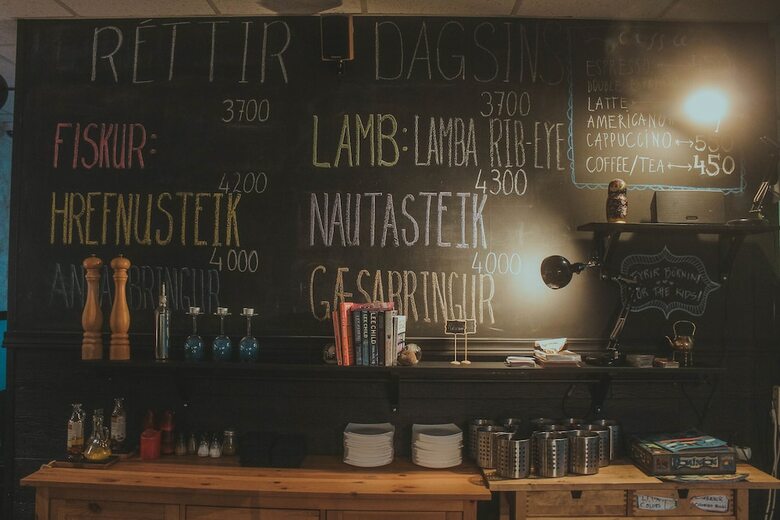 RÉTTIR DAGSINS
3700
FISKUR:
4200
HREFNUSTEIK
4000
BRINGUR
3700
LAMB: LAMBA RIB-EYE
4300
NAUTASTEIK
4000
GÆSABRINGUR
Coffee
ESPRESSO
DOUBLE
LATTE
AMERICANO
CAPPUCCINO
COFFEE/TEA ↔ 450
FYRIR BÖRNIN/
FOR THE KIDS!
LEE CHILD